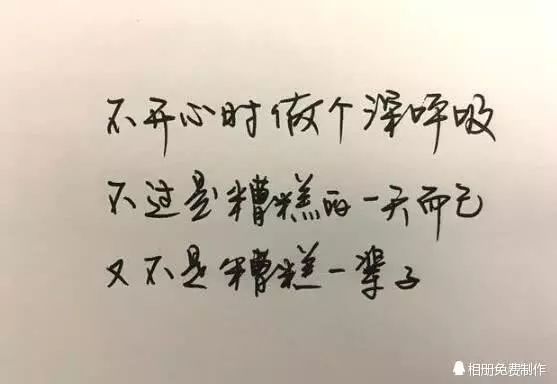 不开心时做个深呼吸
不过是糟糕的一天而已
又不是糟糕一辈子
相册免费制作